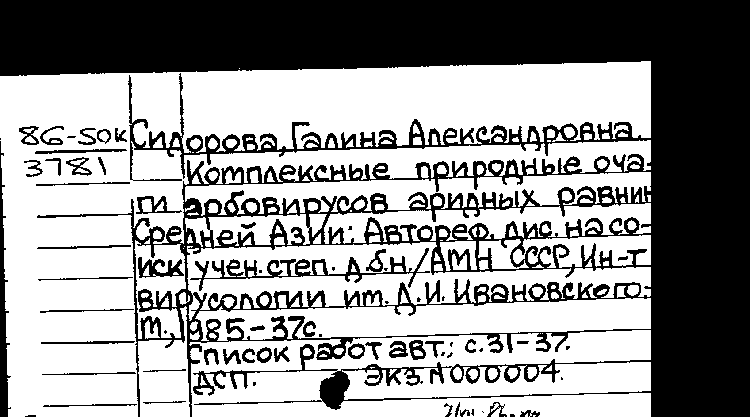 86-5ок
3781
Сидорова, Галина Александровна.
Комплексные природные оча-
ги арбовирусов аридных равнин
Средней Азии: Автореф. дис. на со-
иск учен. степ. д.б.н./АМН СССР, Ин-т
вирусологии им. Д.И. Ивановского.-
т., 1985.-37с.
Список работ авт.: с.31-37.
ДСП. Экз. N000004.